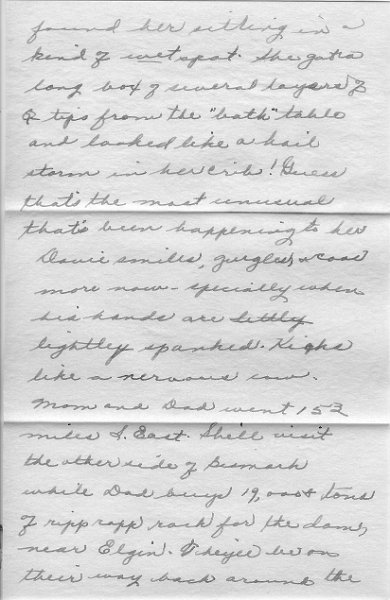 found her sitting in a
kind of wet spot. She got a
long box of several layers of
Q tips from the "bath" table
and looked like a hail
storm in her crib! Guess
that's the most unusual
that's been happening to her
Davie smiles, gurgles, & coos
more now - specially when
his hands are
lightley spanked. Kicks
like a nervous cow.
Mom and Dad went 153
miles S. East. She'll visit
the other side of Bismark
while Dad buys 19,000 tons
of ripp rapp rock for the dam,
near Elgin. They'll be on
their way back around the